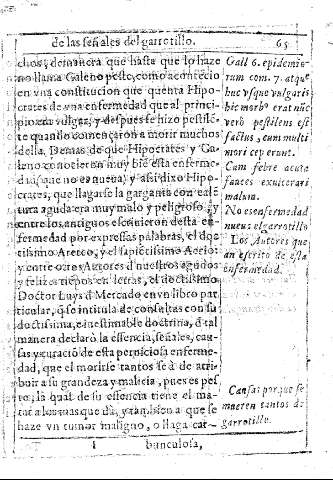 de las señales del garrotillo. 65
chos; demanera que hasta que lo haze
no llama Galeno peste, como acontecio
en vna constitucion que quenta Hipo-
crates de vna enfermedad que al princi-
pio era vulgar, y despues se hizo pestilẽ-
te quando començaron a morir muchos
della. Demas de que Hipocrates y Ga-
leno conocieron muy biẽ esta enferme-
dad (que no es nueua) y assi dixo Hipo-
crates, que llagarse la garganta con calẽ-
tura aguda era muy malo y peligroso, y
entre los antiguos escriuieron desta en-
fermedad por expressas palabras, el doc
tissimo Areteo, y el sapientissimo Aecio:
y entre otros Autores d nuestros agudos
y felizes tiẽpos en letras, el doctissimo
Doctor Luys d Mercado en vn libro par
ticular, q̃ se intitula de consultas con su
doctissima, e inestimable doctrina, d tal
manera declarò la essencia, señales, cau-
sas y curaciõ de esta perniciosa enferme-
dad, que el morirse tantos se à de atri-
buir a su grandeza y malicia, pues es pes
te, la qual de su essencia tiene el ma-
tar a los mas que dà, y tambien a que se
haze vn tumor maligno, o llaga car-
I bunculosa,
Gall 6. epidemie
rum com. 7. atque
huc vsque vulgaris
hic morbº erat nũc
verò pestilens est
factus, cum multi
mori ceperunt.
Cum febre acuta
fauces exulcerari
malum.
No es enfermedad
nueua el garrotillo
Los Autores que
an escrito de esta
enfermedad.
Causas porque se
mueren tantos de
garrotillo.